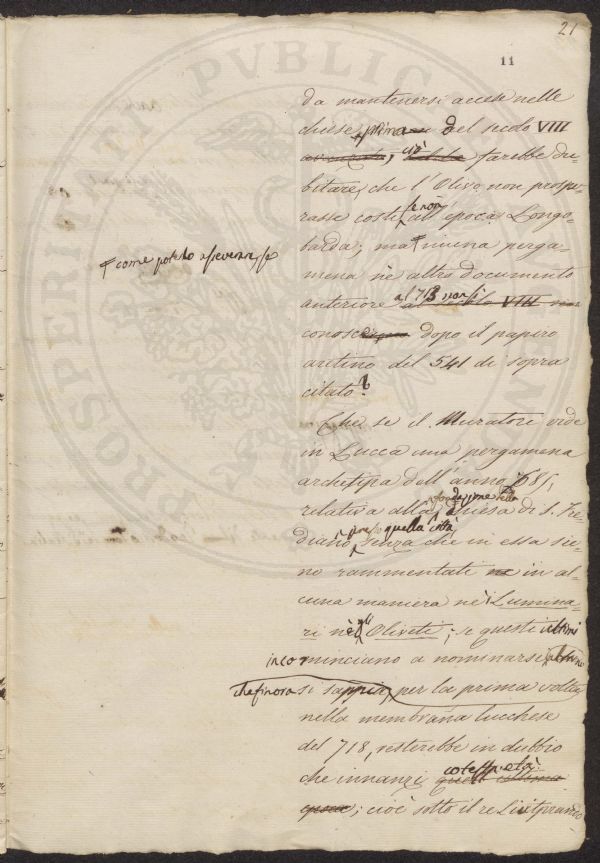 21
11
da mantenersi accese nelle
chiese prima del secolo VIII
ciò farebbe du-
bitare, che l'Olivo non prospe-
rasse costì, se non all'epoca Longo-
barda; ma niuna perga-
mena nè altro documento
anteriore al 713 non si
conosce dopo il papiro
aretino del 541 di sopra
citato?
come poterlo asseverare, se
Che se il Muratori vide
in Lucca una pergamena
archetipa dell'anno 685,
relativa alla fondazione della Chiesa di S. Fre-
diano presso quella città, senza che in essa sie-
no rammentati in al-
cuna maniera nè i Lumina-
ri nè gli Oliveti; se questi ultimi
incominciano a nominarsi,
che finora si sappia, per la prima volta
nella membrana lucchese
del 718, resterebbe in dubbio
che innanzi cotesta età:
cioè sotto il re Liutprando
PROSPERITATI PUBLICAE